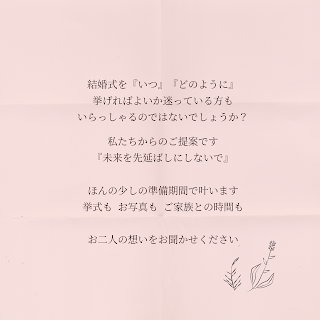 結婚式を『いつ』『どのように』
挙げればよいか迷っている方も
いらっしゃるのではないでしょうか？
私たちからのご提案です
『未来を先延ばしにしないで』
ほんの少しの準備期間で叶います
挙式も お写真も ご家族との時間も
お二人の想いをお聞かせください